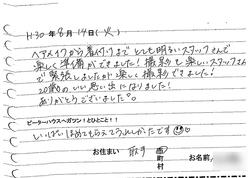 H30年8月14日(火)
ヘアメイクから着付けまでとても明るいスタッフさんで
楽しく準備ができました!撮影も楽しいスタッフさん
で緊張しましたが楽しく撮影できました!
20歳のいい思い出になりました!
ありがとうございました。
ピーターハウスへガツン!とひとこと!!
いっぱいほめてもらえてうれしかったです
お住まい 市 町 村 お名前